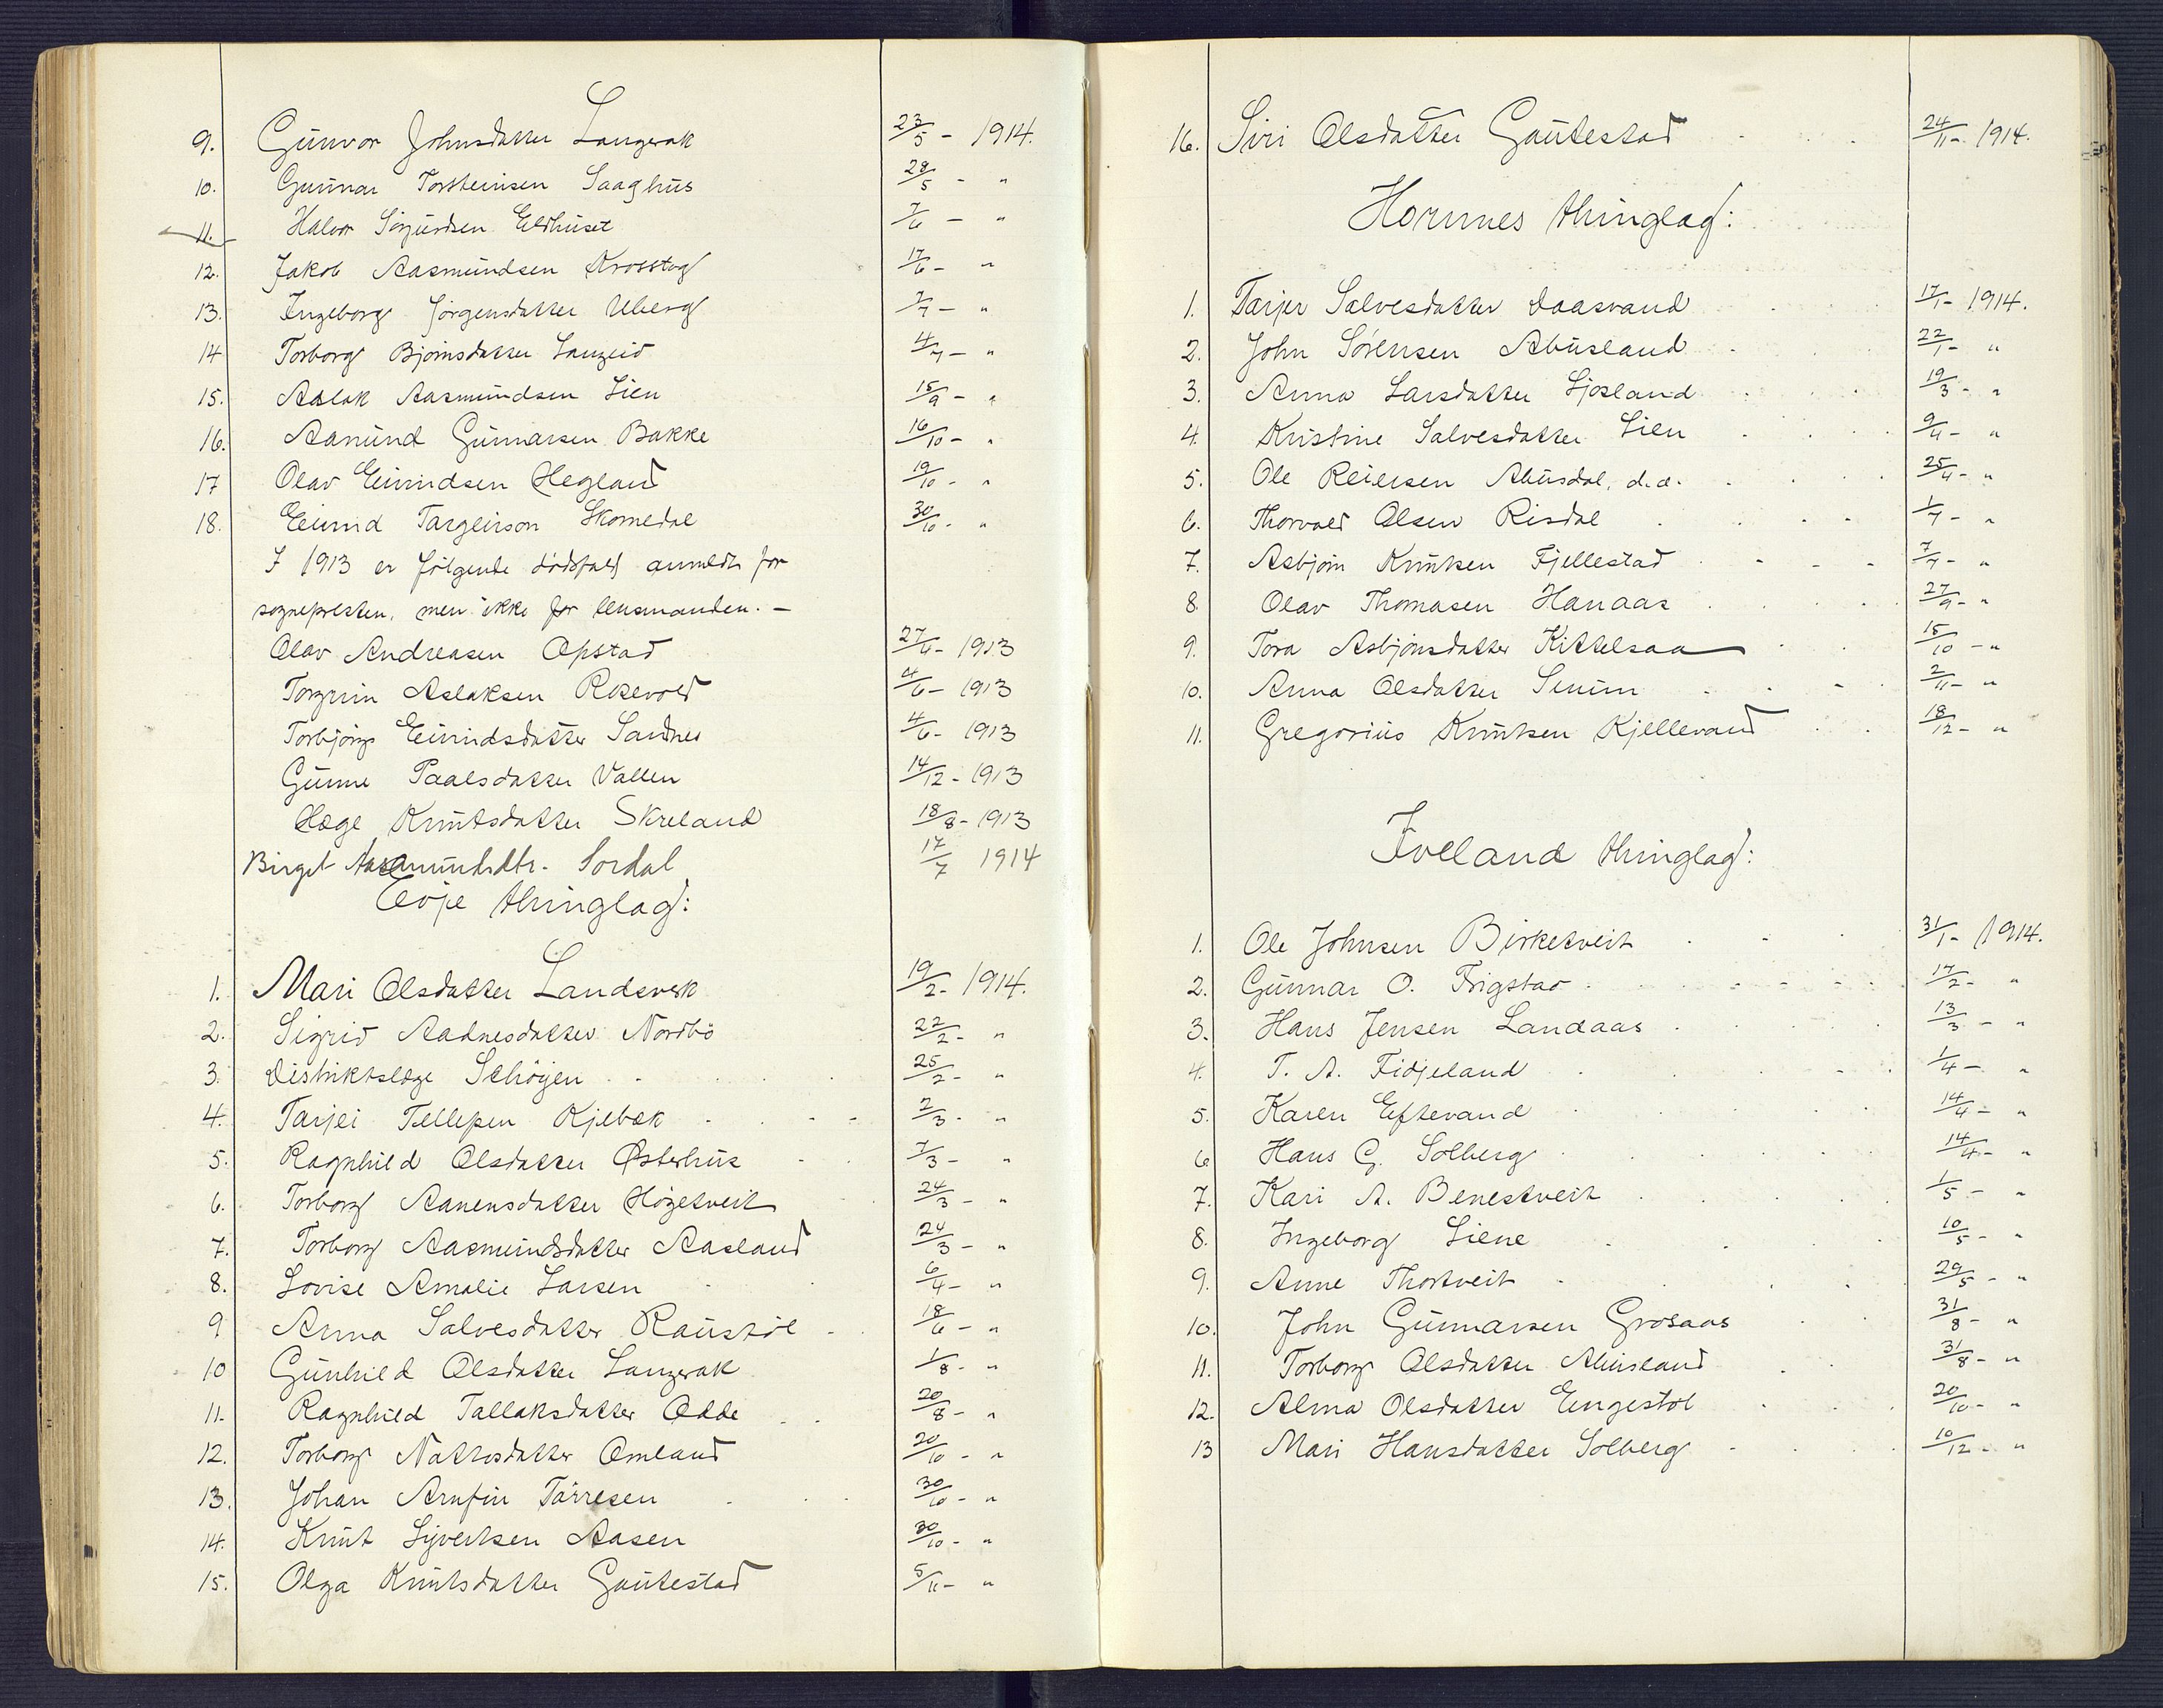 9. Gunvor Johnsdatter Langerak 23/5 - 1914.
10. Gunnar Torsteinsen Saaghus 28/5 - "
11. Halvor Sigurdsen Eldhuset 7/6 - "
12. Jakob Aasmundsen Krosstog 17/6 - "
13. Ingeborg Jørgensdatter Uberg 7/7 - "
14 Torborg Bjørnsdatter Langeid 4/7 - "
15. Aslak Aasmundsen Lien 15/9 - "
16. Aanund Gunnarsen Bakke 16/10 - "
17 Olav Eivindsen Hegland 19/10 - "
18. Eivind Targeirson Skomedal 30/10 - "
I 1913 er følgende dødsfald anmeldt for
sognepresten, men ikke for lensmanden. -
Olav Andreasen Opstad 27/6 - 1913
Torgrim Aslaksen Rosevold 4/6 - 1913
Torbjørg Eivindsdatter Sandnes 4/6 - 1913
Gunne Paalsdatter Vallen 14/12 - 1913
Hæge Knutsdatter Skreland 18/8 - 1913
Birget Aasmundsdtr. Sordal 17/7 1914
Evje thinglag:
1. Mari Olsdatter Landsverk 19/2 - 1914.
2. Sigrid Aadnesdatter Nordbø 22/2 - "
3. Distriktslæge Schöyen 25/2 - "
4. Tarjei Tellefsen Kjebæk 2/3 - "
5. Ragnhild Olsdatter Østerhus 7/3 - "
6. Torborg Aanensdatter Høgetveit 24/3 - "
7. Torborg Aasmundsdatter Aasland 24/3 - "
8. Lovise Amalie Larsen 6/4 - "
9 Anna Salvesdatter Raustøl 18/6 - "
10 Gunhild Olsdatter Langerak 1/8 - "
11. Ragnhild Tallaksdatter Odde 20/8 - "
12. Torborg Nattosdatter Omland 20/10 - "
13. Johan Arnfin Tørresen 30/10 - "
14. Knut Syvertsen Aasen 30/10 - "
15. Olga Knutsdatter Gautestad 5/11 - "
16. Siri Olsdatter Gautestad 24/11 - 1914.
Hornnes thinglag:
1. Tarjer Salvesdatter Daasvand 17/1 - 1914.
2. John Sørensen Abusland 22/1 - "
3. Anna Larsdatter Ljosland 19/3 - "
4. Kristine Salvesdatter Lien 9/4 - "
5. Ole Reiersen Abusdal, d.æ. 25/4 - "
6. Thorvald Olsen Risdal 1/7 - "
7. Asbjørn Knutsen Fjellestad 7/7 - "
8. Olav Thomasen Hanaas 27/9 - "
9. Tora Asbjønsdatter Kittelsaa 15/10 - "
10. Anna Olsdatter Senum 2/11 - "
11. Gregorius Knutsen Kjellevand 18/12 - "
Iveland thinglag:
1. Ole Johnsen Birketveit 31/1 - 1914.
2. Gunnar O. Frigstad 17/2 - "
3. Hans Jensen Landaas 13/3 - "
4. T. A. Fidjeland 1/4 - "
5. Karen Eftevand 14/4 - "
6 Hans G. Solberg 14/4 - "
7. Kari A. Benestveit 1/5 - "
8. Ingeborg Liene 10/5 - "
9. Anne Thortveit 29/5 - "
10. John Gunnarsen Grosaas 31/8 - "
11. Torborg Olsdatter Abusland 31/8 - "
12. Alma Olsdatter Engestøl 20/10 - "
13 Mari Hansdatter Solberg 10/12 - "